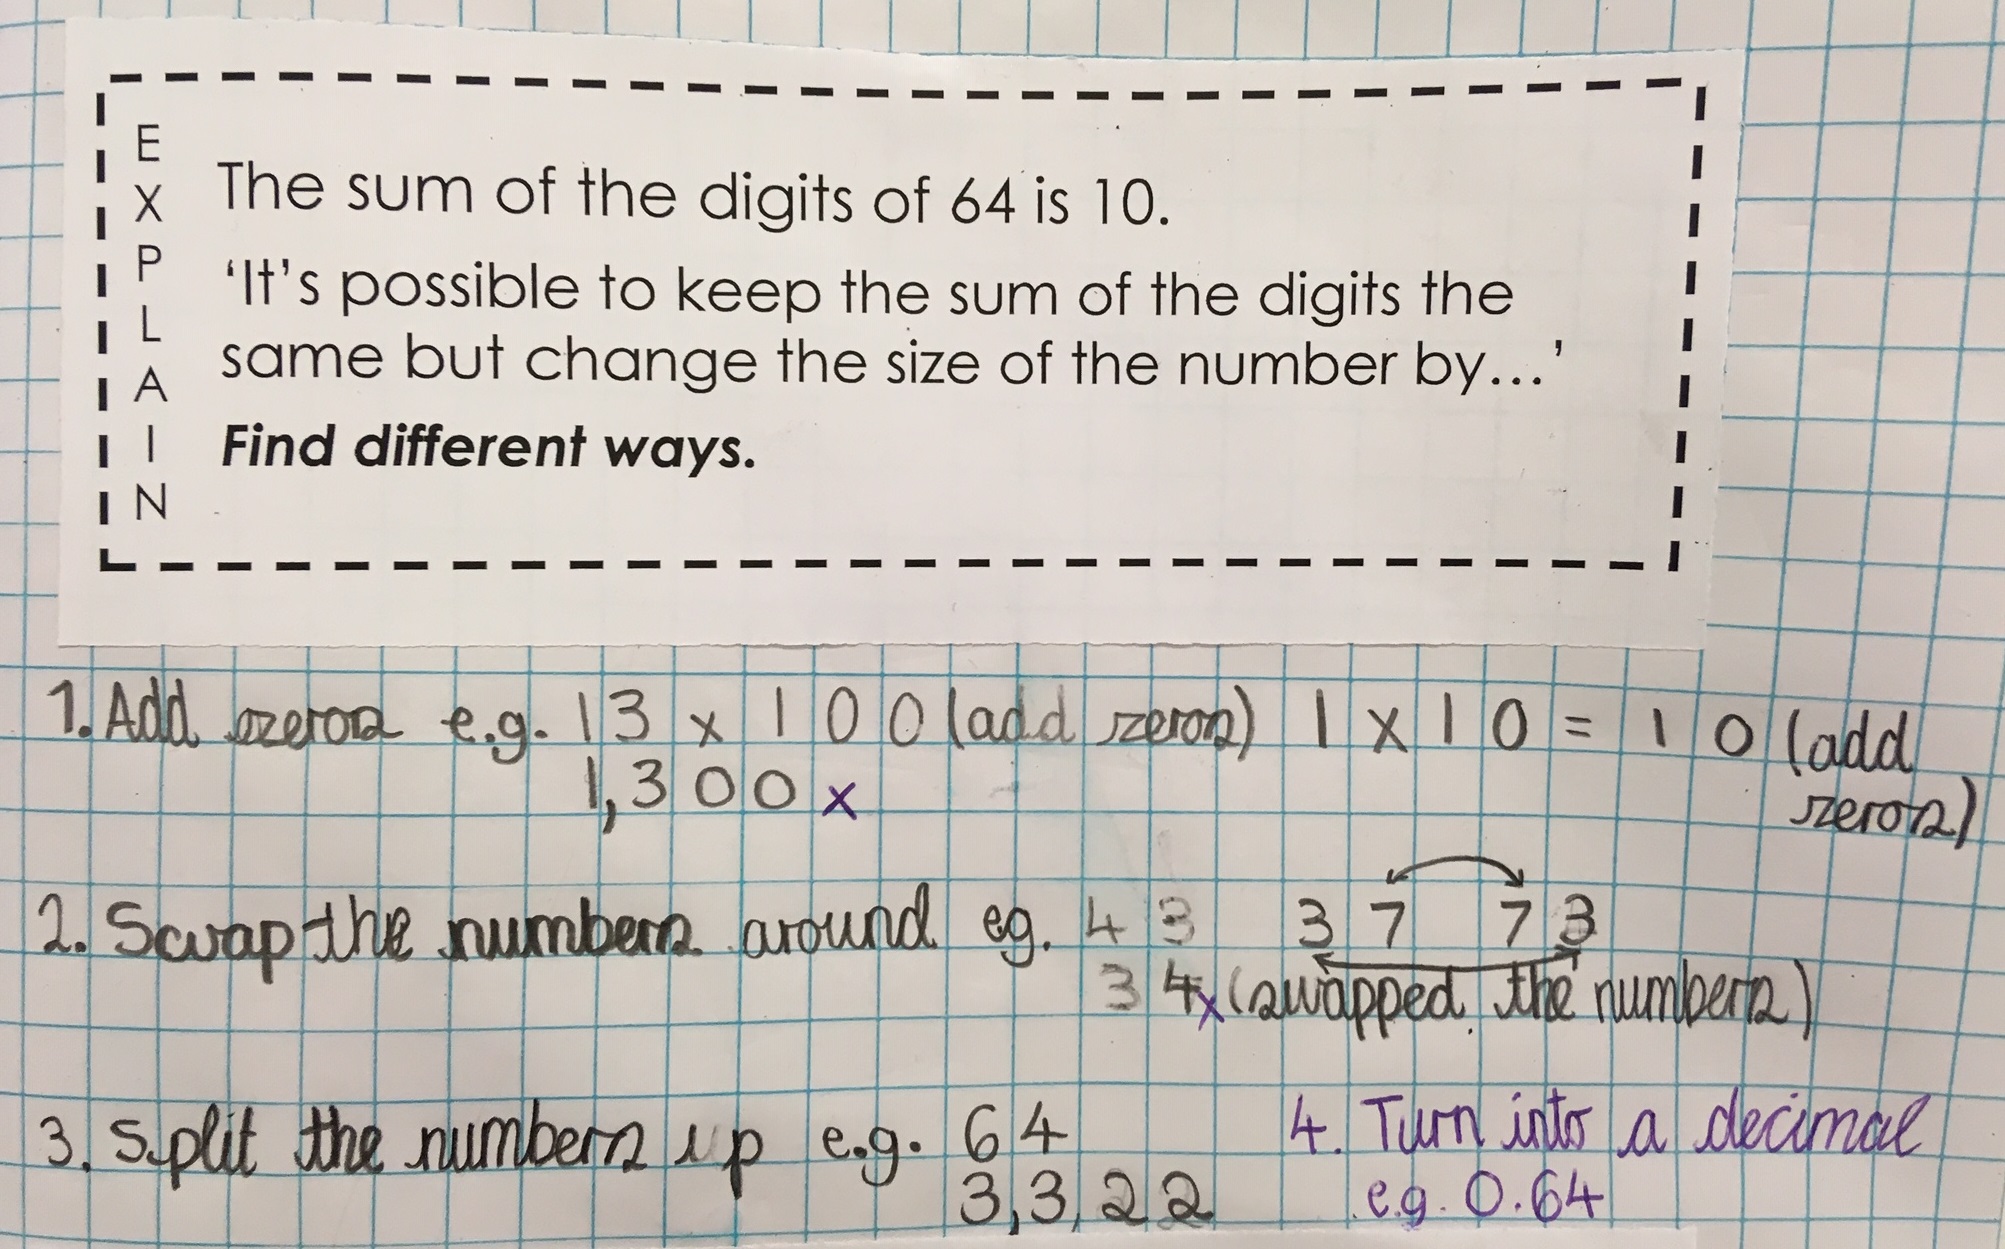 EXPLAIN
The sum of the digits of 64 is 10.
‘It’s possible to keep the sum of the digits the
same but change the size of the number by...’
Find different ways.
1. Add zeros e.g. 13 x 100 (add zeros) 1 x 10 = 10 (add
1,300 x zeros)
2. Swap the numbers around eg. 43 37 73
34 x (swapped the numbers)
3. Split the numbers up e.g. 64 4. Turn into a decimal
3,3,22 e.g. 0.64